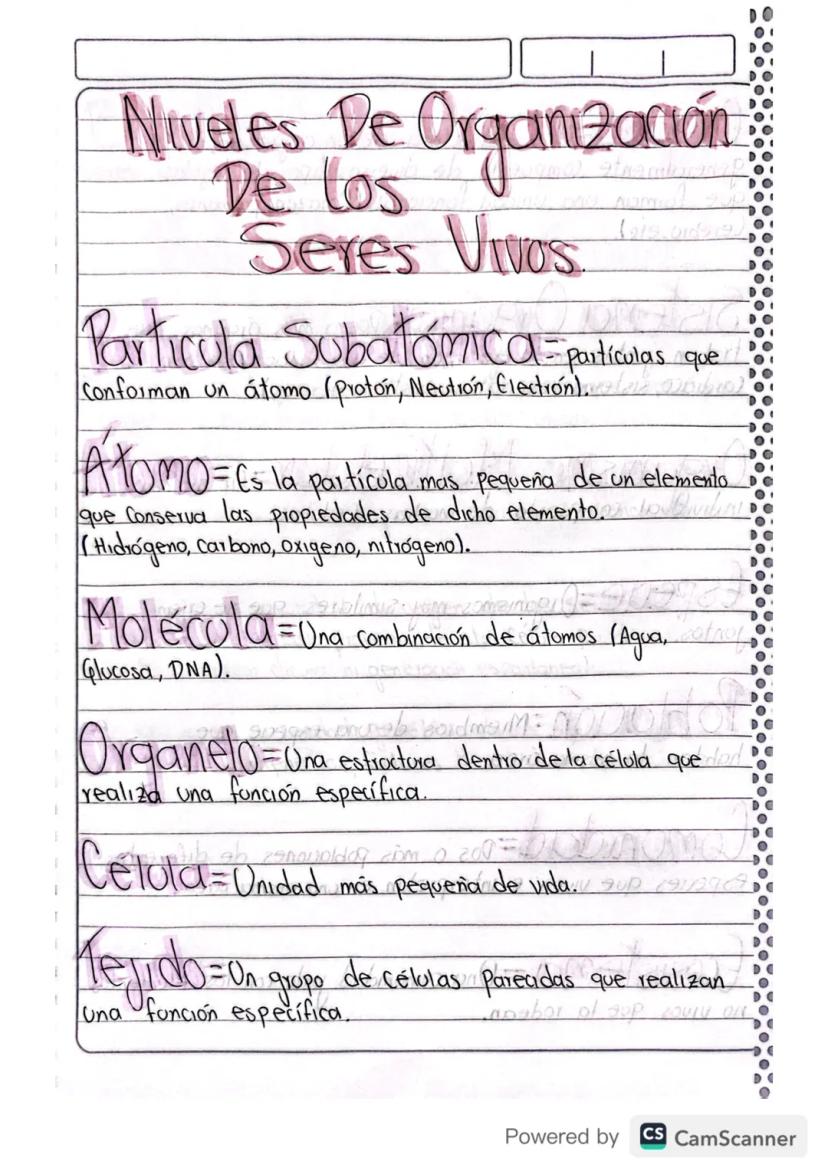 Niveles De Organización
De los
Seres Vivos.
Partícula Subatómica = partículas que
conforman un átomo (Protón, Neutrón, Electrón).
Átomo = Es la partícula mas pequeña de un elemento
que conserva las propiedades de dicho elemento.
(Hidrógeno, carbono, oxigeno, nitrógeno).
Molécula = Una combinación de átomos (Agua,
Glucosa, DNA).
Organelo = Una estructura dentro de la célula que
realiza una función específica.
Célula = Unidad más pequeña de vida.
Tejido = Un grupo de células parecidas que realizan
una función específica.
Powered by CS CamScanner